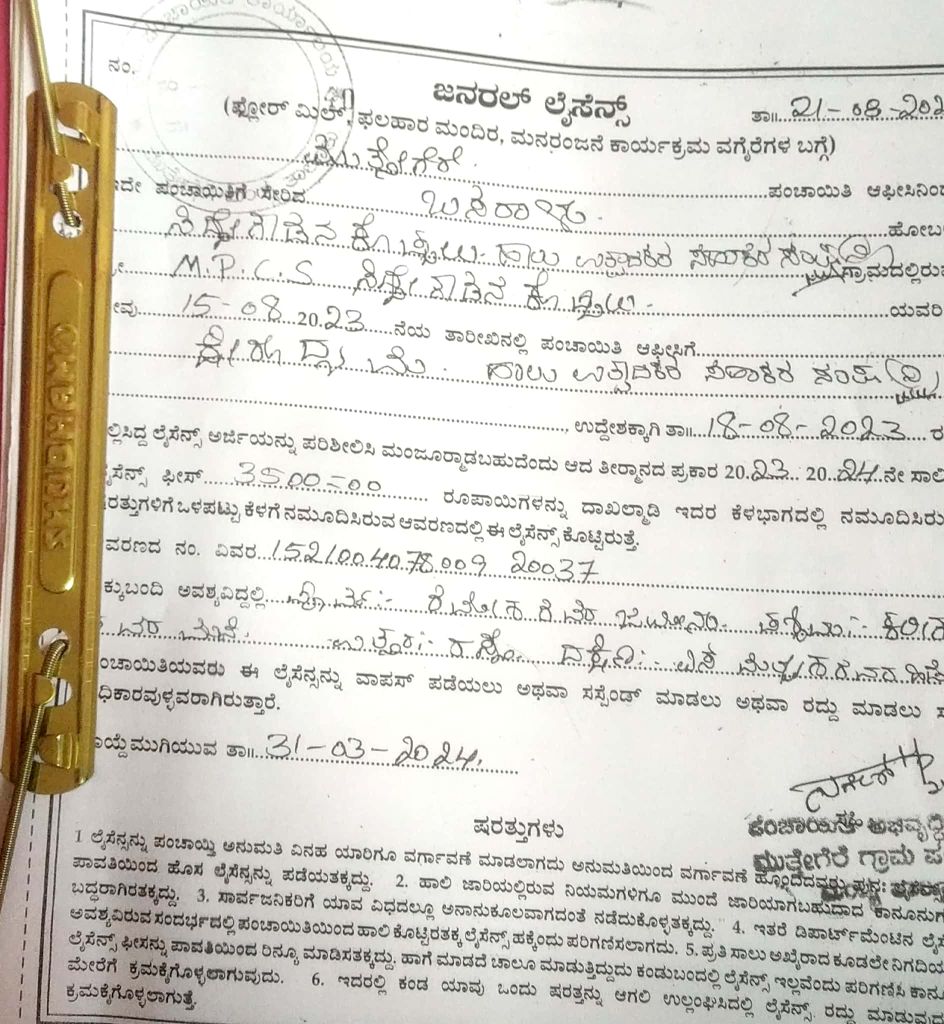 ನಂ.
ಜನರಲ್ ಲೈಸೆನ್ಸ್ ತಾ॥ 21-08-202
(ಫ್ಲೋರ್ ಮಿಲ್, ಫಲಹಾರ ಮಂದಿರ, ಮನರಂಜನೆ ಕಾರ್ಯಕ್ರಮ ವಗೈರೆಗಳ ಬಗ್ಗೆ)
ಮುತ್ತೇಗೆರೆ ಪಂಚಾಯಿತಿ ಆಫೀಸಿನಿಂದ
ದೇ ಪಂಚಾಯಿತಿಗೆ ಸೇರಿದ ಬಸರಾಳು ಹೋಬ
ಹಾಲು ಉತ್ಪಾದಕರ ಸಹಕಾರ ಗ್ರಾಮದಲ್ಲಿರು
M.P.C.S ಯವರಿ
ವು 15-08 2023 ನೆಯ ತಾರೀಖಿನಲ್ಲಿ ಪಂಚಾಯಿತಿ ಆಫೀಸಿಗೆ
ಹಾಲು ಉತ್ಪಾದಕರ ಸಹಕಾರ ಸಂಘ (ನಿ)
ಉದ್ದೇಶಕ್ಕಾಗಿ ತಾ॥ 18-08-2023 ರ
ಲ್ಲಿಸಿದ್ದ ಲೈಸೆನ್ಸ್ ಅರ್ಜಿಯನ್ನು ಪರಿಶೀಲಿಸಿ ಮಂಜೂರ್ಮಾಡಬಹುದೆಂದು ಆದ ತೀರ್ಮಾನದ ಪ್ರಕಾರ 2023 2024 ನೇ ಸಾಲಿ
ೈಸೆನ್ಸ್ ಫೀಸ್ 3500=00 ರೂಪಾಯಿಗಳನ್ನು ದಾಖಲ್ಮಾಡಿ ಇದರ ಕೆಳಭಾಗದಲ್ಲಿ ನಮೂದಿಸಿರು
ರತ್ತುಗಳಿಗೆ ಒಳಪಟ್ಟು ಕೆಳಗೆ ನಮೂದಿಸಿರುವ ಆವರಣದಲ್ಲಿ ಈ ಲೈಸೆನ್ಸ್ ಕೊಟ್ಟಿರುತ್ತೆ.
ವರಣದ ನಂ. ವಿವರ 1521004078009 20037
ಕ್ಕುಬಂದಿ ಅವಶ್ಯವಿದ್ದಲ್ಲಿ ಪೂರ್ವ:- ಜಮೀನು ಪಶ್ಚಿಮ:-
ಮನೆ. ಉತ್ತರ:- ರಸ್ತೆ ದಕ್ಷಿಣ:-
ಂಚಾಯಿತಿಯವರು ಈ ಲೈಸೆನ್ಸನ್ನು ವಾಪಸ್ ಪಡೆಯಲು ಅಥವಾ ಸಸ್ಪೆಂಡ್ ಮಾಡಲು ಅಥವಾ ರದ್ದು ಮಾಡಲು ಸ
ಧಿಕಾರವುಳ್ಳವರಾಗಿರುತ್ತಾರೆ.
ಾಯ್ದೆಮುಗಿಯುವ ತಾ॥ 31-03-2024.
ಪಂಚಾಯತ್ ಅಭಿವೃದ್ಧಿ
ಮುತ್ತೇಗೆರೆ ಗ್ರಾಮ ಪ
ಷರತ್ತುಗಳು
1 ಲೈಸೆನ್ಸನ್ನು ಪಂಚಾಯ್ತಿ ಅನುಮತಿ ವಿನಹ ಯಾರಿಗೂ ವರ್ಗಾವಣೆ ಮಾಡಲಾಗದು ಅನುಮತಿಯಿಂದ ವರ್ಗಾವಣೆ ಹೊಂದಿದವರು ಪುನಃ
ಪಾವತಿಯಿಂದ ಹೊಸ ಲೈಸೆನ್ಸನ್ನು ಪಡೆಯತಕ್ಕದ್ದು. 2. ಹಾಲಿ ಜಾರಿಯಲ್ಲಿರುವ ನಿಯಮಗಳಿಗೂ ಮುಂದೆ ಜಾರಿಯಾಗಬಹುದಾದ ಕಾನೂನುಗ
ಬದ್ಧರಾಗಿರತಕ್ಕದ್ದು. 3. ಸಾರ್ವಜನಿಕರಿಗೆ ಯಾವ ವಿಧದಲ್ಲೂ ಅನಾನುಕೂಲವಾಗದಂತೆ ನಡೆದುಕೊಳ್ಳತಕ್ಕದ್ದು. 4. ಇತರೆ ಡಿಪಾರ್ಟ್‌ಮೆಂಟಿನ ಲೈಸೆ
ಅವಶ್ಯವಿರುವ ಸಂದರ್ಭದಲ್ಲಿ ಪಂಚಾಯಿತಿಯಿಂದ ಹಾಲಿ ಕೊಟ್ಟಿರತಕ್ಕ ಲೈಸೆನ್ಸ್ ಹಕ್ಕೆಂದು ಪರಿಗಣಿಸಲಾಗದು. 5. ಪ್ರತಿ ಸಾಲು ಅಖೈರಾದ ಕೂಡಲೇ ನಿಗದಿಯ
ಲೈಸೆನ್ಸ್ ಫೀಸನ್ನು ಪಾವತಿಯಿಂದ ರಿನ್ಯೂ ಮಾಡಿಸತಕ್ಕದ್ದು. ಹಾಗೆ ಮಾಡದೆ ಚಾಲೂ ಮಾಡುತ್ತಿದ್ದುದು ಕಂಡುಬಂದಲ್ಲಿ ಲೈಸೆನ್ಸ್ ಇಲ್ಲವೆಂದು ಪರಿಗಣಿಸಿ ಕಾನೂ
ಮೇರೆಗೆ ಕ್ರಮಕೈಗೊಳ್ಳಲಾಗುವುದು. 6. ಇದರಲ್ಲಿ ಕಂಡ ಯಾವು ಒಂದು ಷರತ್ತನ್ನು ಆಗಲಿ ಉಲ್ಲಂಘಿಸಿದಲ್ಲಿ ಲೈಸೆನ್ಸ್ ರದ್ದು ಮಾಡುವುದ
ಕ್ರಮಕೈಗೊಳ್ಳಲಾಗುತ್ತೆ.